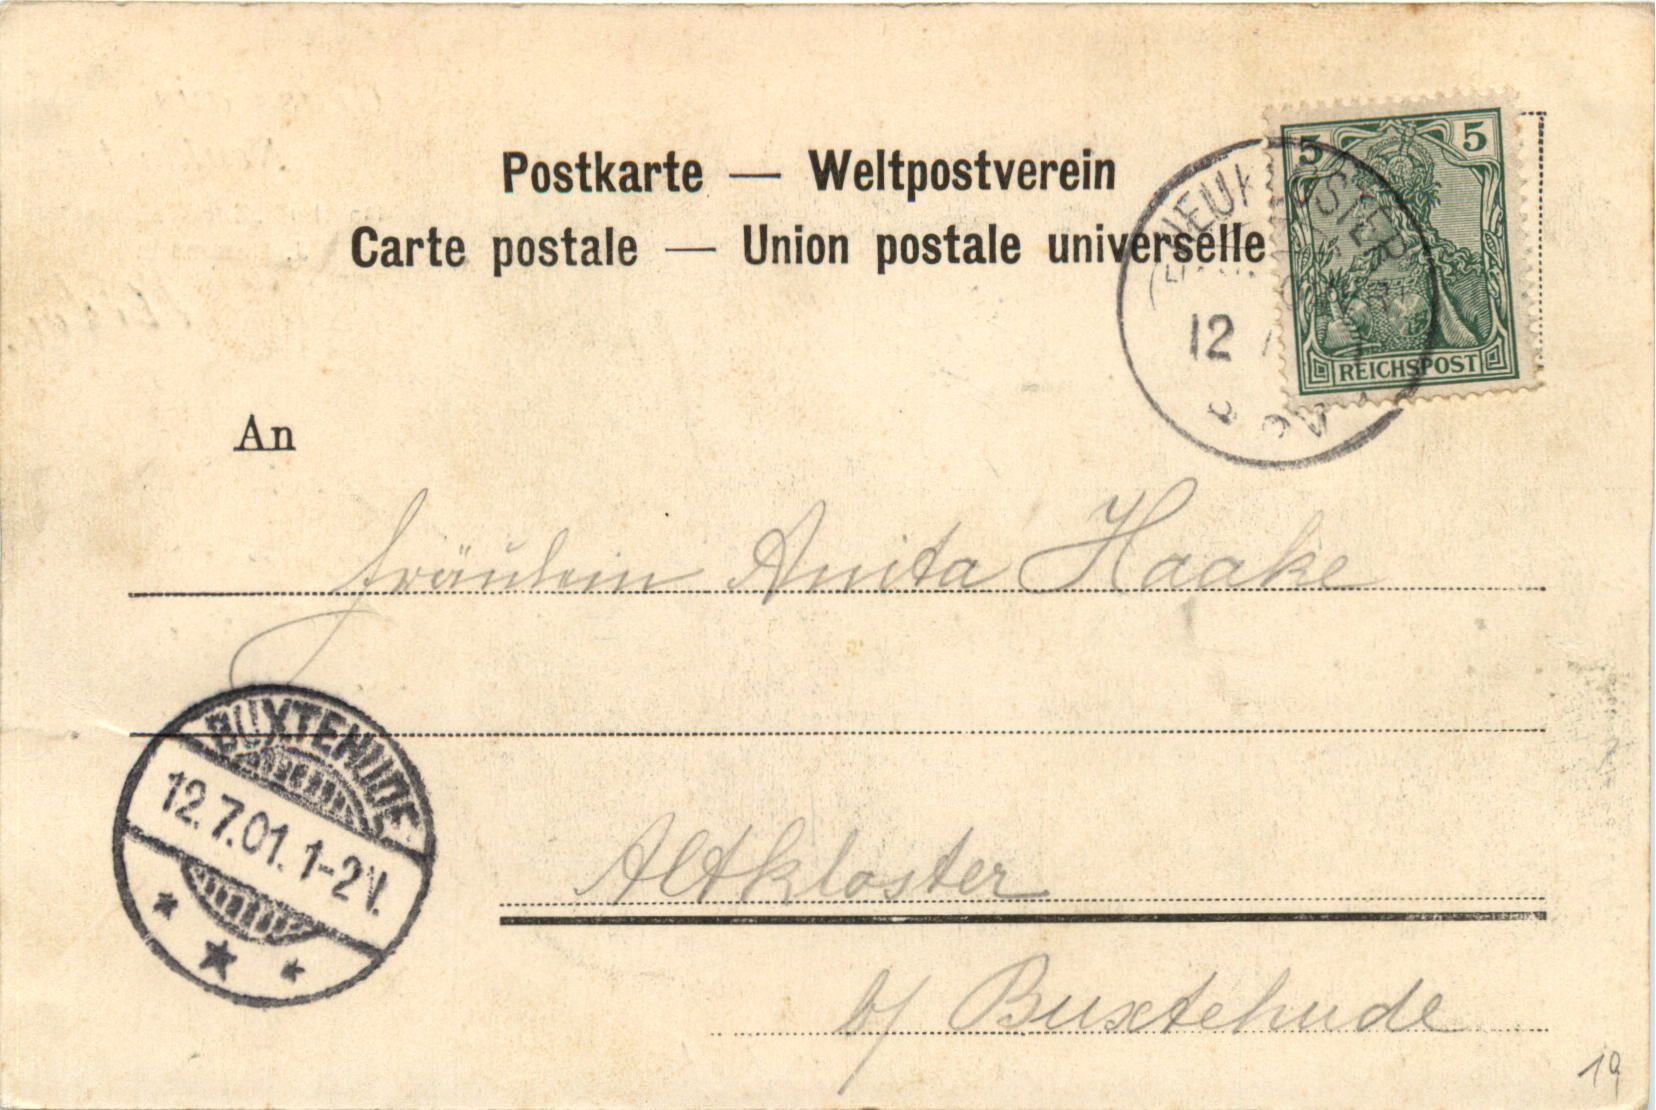 Postkarte — Weltpostverein
Carte postale — Union postale universelle
5 5
REICHSPOST
12
An
Fräulein Anita Haake
BUXTEHUDE
12.7.01. 1-2V.
Altkloster
b/ Buxtehude
19